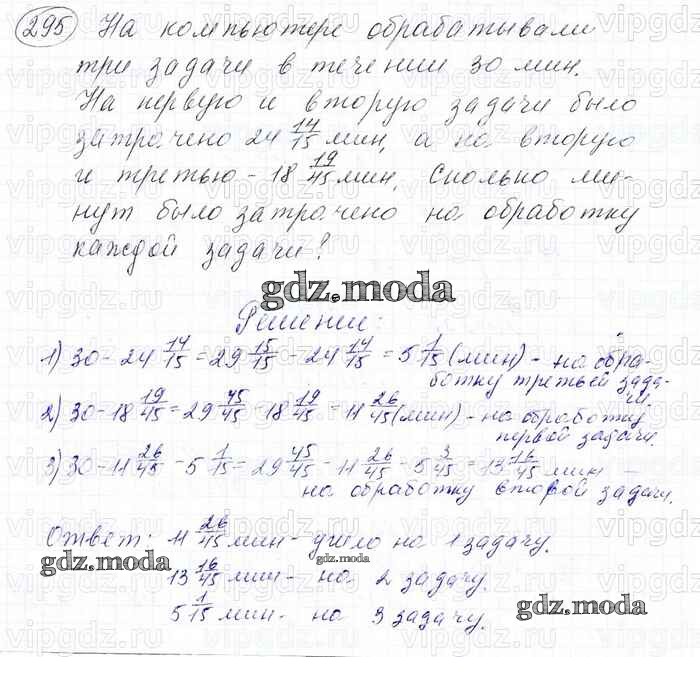 295 На компьютере обрабатывали
три задачи в течении 30 мин.
На первую и вторую задачи было
затрачено 24 14/15 мин, а на вторую
и третью - 18 19/45 мин. Сколько ми-
нут было затрачено на обработку
каждой задачи?
gdz.moda
Решение:
1) 30 - 24 14/15 = 29 15/15 - 24 14/15 = 5 1/15 (мин) - на обра-
ботку третьей зада-
чи
2) 30 - 18 19/45 = 29 45/45 - 18 19/45 = 11 26/45 (мин) - на обработку
первой задачи.
3) 30 - 11 26/45 - 5 1/15 = 29 45/45 - 11 26/45 - 5 3/45 = 13 16/45 мин -
на обработку второй задачи.
Ответ: 11 26/45 мин - ушло на 1 задачу.
gdz.moda
gdz.moda
13 16/45 мин - на 2 задачу.
5 1/15 мин - на 3 задачу.
gdz.moda